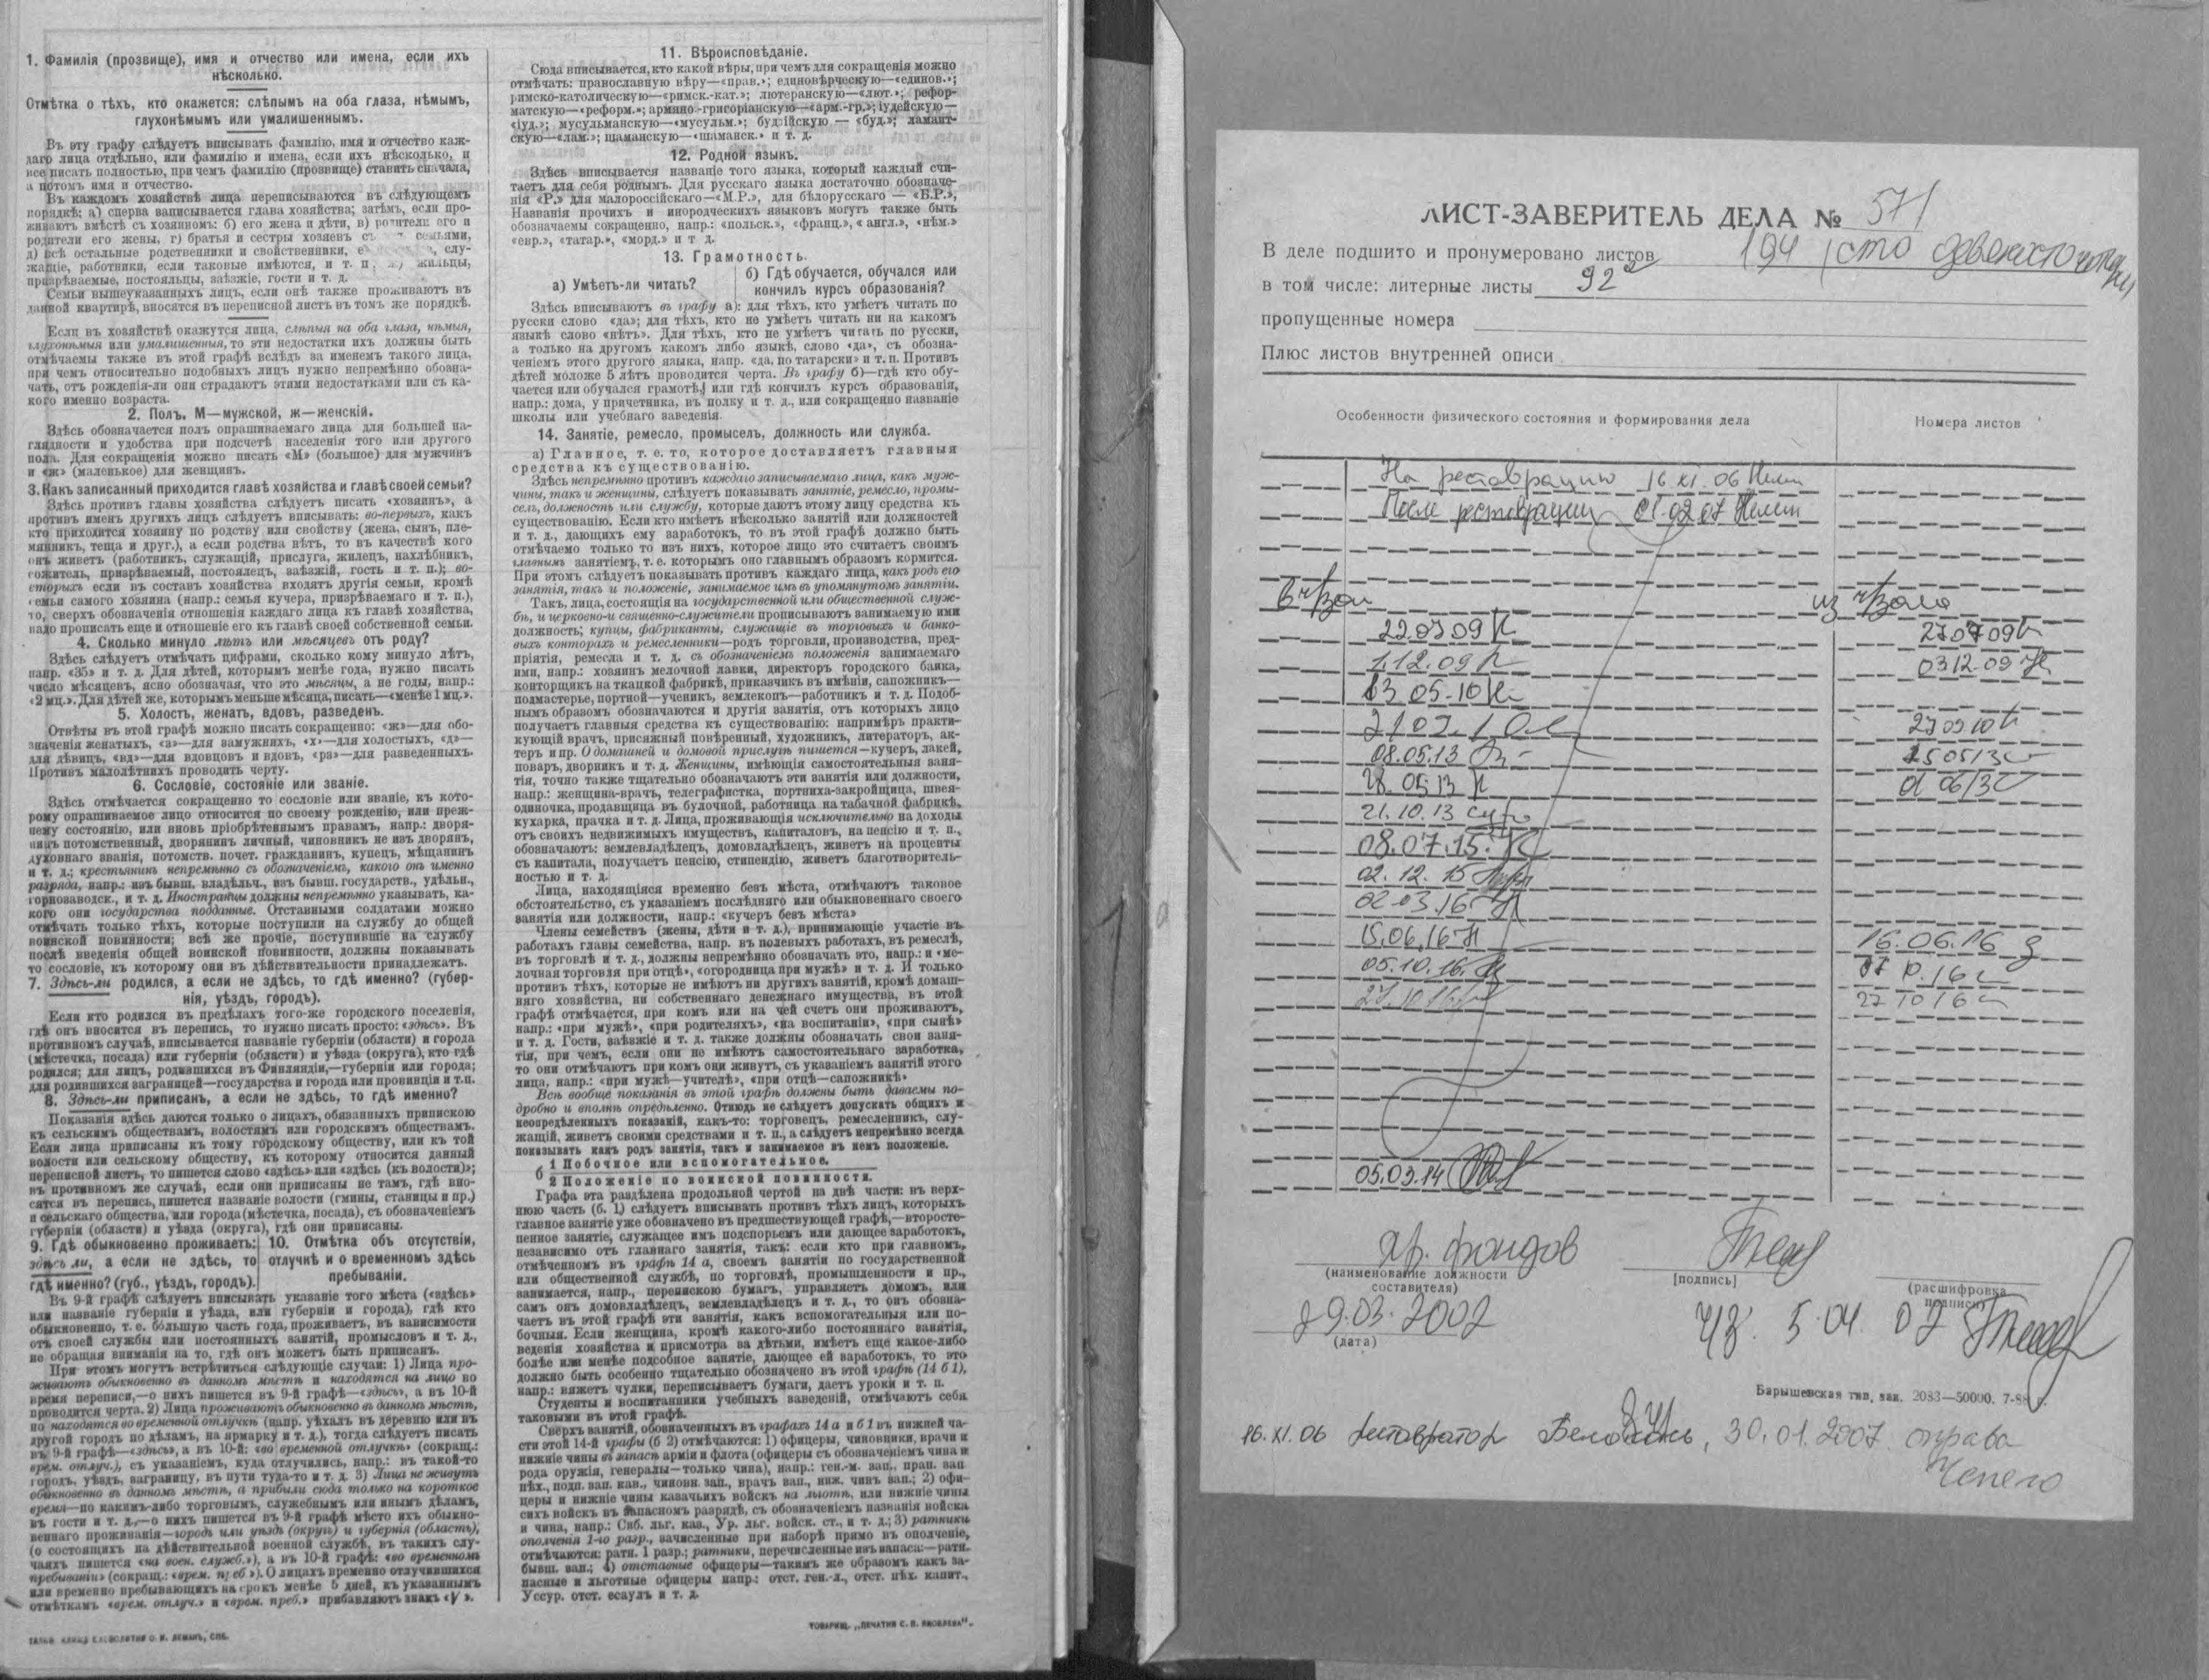 1. Фамилія (прозвище), имя и отчество или имена, если ихъ
нѣсколько.
Отмѣтка о тѣхъ, кто окажется: слѣпымъ на оба глаза, нѣмымъ,
глухонѣмымъ или умалишеннымъ.
Въ эту графу слѣдуетъ вписывать фамилію, имя и отчество каж-
даго лица отдѣльно, или фамилію и имена, если ихъ нѣсколько, и
все писать полностью, при чемъ фамилію (прозвище) ставить сначала,
а потомъ имя и отчество.
Въ каждомъ хозяйствѣ лица переписываются въ слѣдующемъ
порядкѣ: а) сперва записывается глава хозяйства; затѣмъ, если про-
живаютъ вмѣстѣ съ хозяиномъ: б) его жена и дѣти, в) родители его и
родители его жены, г) братья и сестры хозяевъ съ семьями,
д) всѣ остальные родственники и свойственники, слу-
жащіе, работники, если таковые имѣются, и т. п. жильцы,
призрѣваемые, постояльцы, заѣзжіе, гости и т. д.
Семьи вышеуказанныхъ лицъ, если онѣ также проживаютъ въ
данной квартирѣ, вносятся въ переписной листъ въ томъ же порядкѣ.
Если въ хозяйствѣ окажутся лица, слѣпыя на оба глаза, нѣмыя,
глухонѣмыя или умалишенныя, то эти недостатки ихъ должны быть
отмѣчаемы также въ этой графѣ вслѣдъ за именемъ такого лица,
при чемъ относительно подобныхъ лицъ нужно непремѣнно обозна-
чать, отъ рожденія-ли они страдаютъ этими недостатками или съ ка-
кого именно возраста.
2. Полъ. М—мужской, ж—женскій.
Здѣсь обозначается полъ опрашиваемаго лица для большей на-
глядности и удобства при подсчетѣ населенія того или другого
пола. Для сокращенія можно писать «М» (большое) для мужчинъ
и «ж» (маленькое) для женщинъ.
3. Какъ записанный приходится главѣ хозяйства и главѣ своей семьи?
Здѣсь противъ главы хозяйства слѣдуетъ писать «хозяинъ», а
противъ именъ другихъ лицъ слѣдуетъ вписывать: во-первыхъ, какъ
кто приходится хозяину по родству или свойству (жена, сынъ, пле-
мянникъ, теща и друг.), а если родства нѣтъ, то въ качествѣ кого
онъ живетъ (работникъ, служащій, прислуга, жилецъ, нахлѣбникъ,
сожитель, призрѣваемый, постоялецъ, заѣзжій, гость и т. п.); во-
вторыхъ если въ составъ хозяйства входятъ другія семьи, кромѣ
семьи самого хозяина (напр.: семья кучера, призрѣваемаго и т. п.),
то, сверхъ обозначенія отношенія каждаго лица къ главѣ хозяйства,
надо прописать еще и отношеніе его къ главѣ своей собственной семьи.
4. Сколько минуло лѣтъ или мѣсяцевъ отъ роду?
Здѣсь слѣдуетъ отмѣчать цифрами, сколько кому минуло лѣтъ,
напр. «35» и т. д. Для дѣтей, которымъ менѣе года, нужно писать
число мѣсяцевъ, ясно обозначая, что это мѣсяцы, а не годы, напр.:
«2 мц.». Для дѣтей же, которымъ меньше мѣсяца, писать—«менѣе 1 мц.».
5. Холостъ, женатъ, вдовъ, разведенъ.
Отвѣты въ этой графѣ можно писать сокращенно: «ж»—для обо-
значенія женатыхъ, «з»—для замужнихъ, «х»—для холостыхъ, «д»—
для дѣвицъ, «вд»—для вдовцовъ и вдовъ, «рз»—для разведенныхъ.
Противъ малолѣтнихъ проводить черту.
6. Сословіе, состояніе или званіе.
Здѣсь отмѣчается сокращенно то сословіе или званіе, къ кото-
рому опрашиваемое лицо относится по своему рожденію, или преж-
нему состоянію, или вновь пріобрѣтеннымъ правамъ, напр.: дворя-
нинъ потомственный, дворянинъ личный, чиновникъ не изъ дворянъ,
духовнаго званія, потомств. почет. гражданинъ, купецъ, мѣщанинъ
и т. д.; крестьянинъ непремѣнно съ обозначеніемъ, какого онъ именно
разряда, напр.: изъ бывш. владѣльч., изъ бывш. государств., удѣльн.,
горнозаводск., и т. д. Иностранцы должны непремѣнно указывать, ка-
кого они государства подданные. Отставными солдатами можно
отмѣчать только тѣхъ, которые поступили на службу до общей
воинской повинности; всѣ же прочіе, поступившіе на службу
послѣ введенія общей воинской повинности, должны показывать
то сословіе, къ которому они въ дѣйствительности принадлежатъ.
7. Здѣсь-ли родился, а если не здѣсь, то гдѣ именно? (губер-
нія, уѣздъ, городъ).
Если кто родился въ предѣлахъ того-же городского поселенія,
гдѣ онъ вносится въ перепись, то нужно писать просто: «здѣсь». Въ
противномъ случаѣ, вписывается названіе губерніи (области) и города
(мѣстечка, посада) или губерніи (области) и уѣзда (округа), кто гдѣ
родился; для лицъ, родившихся въ Финляндіи,—губерніи или города;
для родившихся заграницей—государства и города или провинціи и т.п.
8. Здѣсь-ли приписанъ, а если не здѣсь, то гдѣ именно?
Показанія здѣсь даются только о лицахъ, обязанныхъ припискою
къ сельскимъ обществамъ, волостямъ или городскимъ обществамъ.
Если лица приписаны къ тому городскому обществу, или къ той
волости или сельскому обществу, къ которому относится данный
переписной листъ, то пишется слово «здѣсь» или «здѣсь (къ волости)»;
въ противномъ же случаѣ, если они приписаны не тамъ, гдѣ вно-
сятся въ перепись, пишется названіе волости (гмины, станицы и пр.)
и сельскаго общества, или города (мѣстечка, посада), съ обозначеніемъ
губерніи (области) и уѣзда (округа), гдѣ они приписаны.
9. Гдѣ обыкновенно проживаетъ:
здѣсь ли, а если не здѣсь, то
гдѣ именно? (губ., уѣздъ, городъ).
10. Отмѣтка объ отсутствіи,
отлучкѣ и о временномъ здѣсь
пребываніи.
Въ 9-й графѣ слѣдуетъ вписывать указаніе того мѣста («здѣсь»
или названіе губерніи и уѣзда, или губерніи и города), гдѣ кто
обыкновенно, т. е. бо́льшую часть года, проживаетъ, въ зависимости
отъ своей службы или постоянныхъ занятій, промысловъ и т. д.,
не обращая вниманія на то, гдѣ онъ можетъ быть приписанъ.
При этомъ могутъ встрѣтиться слѣдующіе случаи: 1) Лица про-
живаютъ обыкновенно въ данномъ мѣстѣ и находятся на лицо во
время переписи,—о нихъ пишется въ 9-й графѣ—«здѣсь», а въ 10-й
проводится черта. 2) Лица проживаютъ обыкновенно въ данномъ мѣстѣ,
но находятся во временной отлучкѣ (напр. уѣхалъ въ деревню или въ
другой городъ по дѣламъ, на ярмарку и т. д.), тогда слѣдуетъ писать
въ 9-й графѣ—«здѣсь», а въ 10-й: «во временной отлучкѣ» (сокращ.:
врем. отлуч.), съ указаніемъ, куда отлучились, напр.: въ такой-то
городъ, уѣздъ, заграницу, въ пути туда-то и т. д. 3) Лица не живутъ
обыкновенно въ данномъ мѣстѣ, а прибыли сюда только на короткое
время—по какимъ-либо торговымъ, служебнымъ или инымъ дѣламъ,
въ гости и т. д.,—о нихъ пишется въ 9-й графѣ мѣсто ихъ обыкно-
веннаго проживанія—городъ или уѣздъ (округъ) и губернія (область),
(о состоящихъ на дѣйствительной военной службѣ, въ такихъ слу-
чаяхъ пишется «на воен. служб.»), а въ 10-й графѣ: «во временномъ
пребываніи» (сокращ.: «врем. преб.»). О лицахъ временно отлучившихся
или временно пребывающихъ на срокъ менѣе 5 дней, къ указаннымъ
отмѣткамъ «врем. отлуч.» и «врем. преб.» прибавляютъ знакъ «V».
11. Вѣроисповѣданіе.
Сюда вписывается, кто какой вѣры, при чемъ для сокращенія можно
отмѣчать: православную вѣру—«прав.»; единовѣрческую—«единов.»;
римско-католическую—«римск.-кат.»; лютеранскую—«лют.»; рефор-
матскую—«реформ.»; армяно-григоріанскую—«арм.-гр.»; іудейскую—
«іуд.»; мусульманскую—«мусульм.»; буддійскую — «буд.»; ламаит-
скую—«лам.»; шаманскую—«шаманск.» и т. д.
12. Родной языкъ.
Здѣсь вписывается названіе того языка, который каждый счи-
таетъ для себя роднымъ. Для русскаго языка достаточно обозначе-
нія «Р.» для малороссійскаго—«М.Р.», для бѣлорусскаго — «Б.Р.»,
Названія прочихъ и инородческихъ языковъ могутъ также быть
обозначаемы сокращенно, напр.: «польск.», «франц.», «англ.», «нѣм.»
«евр.», «татар.», «морд.» и т д.
13. Грамотность.
а) Умѣетъ-ли читать?
б) Гдѣ обучается, обучался или
кончилъ курсъ образованія?
Здѣсь вписываютъ въ графу а): для тѣхъ, кто умѣетъ читать по
русски слово «да»; для тѣхъ, кто не умѣетъ читать ни на какомъ
языкѣ слово «нѣтъ». Для тѣхъ, кто не умѣетъ читать по русски,
а только на другомъ какомъ либо языкѣ, слово «да», съ обозна-
ченіемъ этого другого языка, напр. «да, по татарски» и т. п. Противъ
дѣтей моложе 5 лѣтъ проводится черта. Въ графу б)—гдѣ кто обу-
чается или обучался грамотѣ, или гдѣ кончилъ курсъ образованія,
напр.: дома, у причетника, въ полку и т. д., или сокращенно названіе
школы или учебнаго заведенія.
14. Занятіе, ремесло, промыселъ, должность или служба.
а) Главное, т. е. то, которое доставляетъ главныя
средства къ существованію.
Здѣсь непремѣнно противъ каждаго записываемаго лица, какъ муж-
чины, такъ и женщины, слѣдуетъ показывать занятіе, ремесло, промы-
селъ, должность или службу, которые даютъ этому лицу средства къ
существованію. Если кто имѣетъ нѣсколько занятій или должностей
и т. д., дающихъ ему заработокъ, то въ этой графѣ должно быть
отмѣчаемо только то изъ нихъ, которое лицо это считаетъ своимъ
главнымъ занятіемъ, т. е. которымъ оно главнымъ образомъ кормится.
При этомъ слѣдуетъ показывать противъ каждаго лица, какъ родъ его
занятія, такъ и положеніе, занимаемое имъ въ упомянутомъ занятіи.
Такъ, лица, состоящія на государственной или общественной служ-
бѣ, и церковно-и священно-служители прописываютъ занимаемую ими
должность; купцы, фабриканты, служащіе въ торговыхъ и банко-
выхъ конторахъ и ремесленники—родъ торговли, производства, пред-
пріятія, ремесла и т. д. съ обозначеніемъ положенія занимаемаго
ими, напр.: хозяинъ мелочной лавки, директоръ городского банка,
конторщикъ на ткацкой фабрикѣ, приказчикъ въ имѣніи, сапожникъ—
подмастерье, портной—ученикъ, землекопъ—работникъ и т. д. Подоб-
нымъ образомъ обозначаются и другія занятія, отъ которыхъ лицо
получаетъ главныя средства къ существованію: напримѣръ практи-
кующій врачъ, присяжный повѣренный, художникъ, литераторъ, ак-
теръ и пр. О домашней и домовой прислугѣ пишется—кучеръ, лакей,
поваръ, дворникъ и т. д. Женщины, имѣющія самостоятельныя заня-
тія, точно также тщательно обозначаютъ эти занятія или должности,
напр.: женщина-врачъ, телеграфистка, портниха-закройщица, швея-
одиночка, продавщица въ булочной, работница на табачной фабрикѣ,
кухарка, прачка и т. д. Лица, проживающія исключительно на доходы
отъ своихъ недвижимыхъ имуществъ, капиталовъ, на пенсію и т. п.,
обозначаютъ: землевладѣлецъ, домовладѣлецъ, живетъ на проценты
съ капитала, получаетъ пенсію, стипендію, живетъ благотворитель-
ностью и т. д.
Лица, находящіяся временно безъ мѣста, отмѣчаютъ таковое
обстоятельство, съ указаніемъ послѣдняго или обыкновеннаго своего
занятія или должности, напр.: «кучеръ безъ мѣста»
Члены семействъ (жены, дѣти и т. д.), принимающіе участіе въ
работахъ главы семейства, напр. въ полевыхъ работахъ, въ ремеслѣ,
въ торговлѣ и т. д., должны непремѣнно обозначать это, напр.: и «ме-
лочная торговля при отцѣ», «огородница при мужѣ» и т. д. И только
противъ тѣхъ, которые не имѣютъ ни другихъ занятій, кромѣ домаш-
няго хозяйства, ни собственнаго денежнаго имущества, въ этой
графѣ отмѣчается, при комъ или на чей счетъ они проживаютъ,
напр.: «при мужѣ», «при родителяхъ», «на воспитаніи», «при сынѣ»
и т. д. Гости, заѣзжіе и т. д. также должны обозначать свои заня-
тія, при чемъ, если они не имѣютъ самостоятельнаго заработка,
то они отмѣчаютъ при комъ они живутъ, съ указаніемъ занятій этого
лица, напр.: «при мужѣ—учителѣ», «при отцѣ—сапожникѣ»
Всѣ вообще показанія въ этой графѣ должны быть даваемы по-
дробно и вполнѣ опредѣленно. Отнюдь не слѣдуетъ допускать общихъ и
неопредѣленныхъ показаній, какъ-то: торговецъ, ремесленникъ, слу-
жащій, живетъ своими средствами и т. п., а слѣдуетъ непремѣнно всегда
показывать какъ родъ занятія, такъ и занимаемое въ немъ положеніе.
1 Побочное или вспомогательное.
б
2 Положеніе по воинской повинности.
Графа эта раздѣлена продольной чертой на двѣ части: въ верх-
нюю часть (б. 1.) слѣдуетъ вписывать противъ тѣхъ лицъ, которыхъ
главное занятіе уже обозначено въ предшествующей графѣ,—второсте-
пенное занятіе, служащее имъ подспорьемъ или дающее заработокъ,
независимо отъ главнаго занятія, такъ: если кто при главномъ,
отмѣченномъ въ графѣ 14 а, своемъ занятіи по государственной
или общественной службѣ, по торговлѣ, промышленности и пр.,
занимается, напр., перепискою бумагъ, управляетъ домомъ, или
самъ онъ домовладѣлецъ, землевладѣлецъ и т. д., то онъ обозна-
чаетъ въ этой графѣ эти занятія, какъ вспомогательныя или по-
бочныя. Если женщина, кромѣ какого-либо постояннаго занятія,
веденія хозяйства и присмотра за дѣтьми, имѣетъ еще какое-либо
болѣе или менѣе подсобное занятіе, дающее ей заработокъ, то это
должно быть особенно тщательно обозначено въ этой графѣ (14 б 1),
напр.: вяжетъ чулки, переписываетъ бумаги, даетъ уроки и т. п.
Студенты и воспитанники учебныхъ заведеній, отмѣчаютъ себя
таковыми въ этой графѣ.
Сверхъ занятій, обозначенныхъ въ графахъ 14 а и б 1 въ нижней ча-
сти этой 14-й графы (б 2) отмѣчаются: 1) офицеры, чиновники, врачи и
нижніе чины въ запасѣ арміи и флота (офицеры съ обозначеніемъ чина и
рода оружія, генералы—только чина), напр.: ген.-м. зап., прап. зап
пѣх., подп. зап. кав., чиновн. зап., врачъ зап., ниж. чинъ зап.; 2) офи-
церы и нижніе чины казачьихъ войскъ на льготѣ, или нижніе чины
сихъ войскъ въ запасномъ разрядѣ, съ обозначеніемъ названія войска
и чина, напр.: Сиб. льг. каз., Ур. льг. войск. ст., и т. д.; 3) ратники
ополченія 1-го разр., зачисленные при наборѣ прямо въ ополченіе,
отмѣчаются: ратн. 1 разр.; ратники, перечисленные изъ запаса:—ратн.
бывш. зап.; 4) отставные офицеры—такимъ же образомъ какъ за-
пасные и льготные офицеры напр.: отст. ген.-л., отст. пѣх. капит.,
Уссур. отст. есаулъ и т. д.
ТОВАРИЩ. „ПЕЧАТНЯ С. П. ЯКОВЛЕВА".
ЛИСТ-ЗАВЕРИТЕЛЬ ДЕЛА № 571
В деле подшито и пронумеровано листов 194 (сто девяносто четыре)
в том числе: литерные листы 92а
пропущенные номера
Плюс листов внутренней описи
Особенности физического состояния и формирования дела
Номера листов
На реставрацию 16.XI.06
После реставрации 01.02.07
В ч/зал
из ч/зала
22.07.09
27.07.09
1.12.09
03.12.09
13.05.10
08.05.13
15 05 13
28.05.13
01 06 13
21.10.13
08.07.15
02.12.15
02.03.16
15.06.16
16.06.16
05.10.16
07 10.16
27.10.16
27 10 16
05.03.14
хр. фондов
(наименование должности
составителя)
[подпись]
(расшифровка
подписи)
29.03.2002
(дата)
5.04.07
Барышевская тип, зак. 2083—50000. 7-88 г.
16.XI.06 реставратор
30.01.2007 оправа